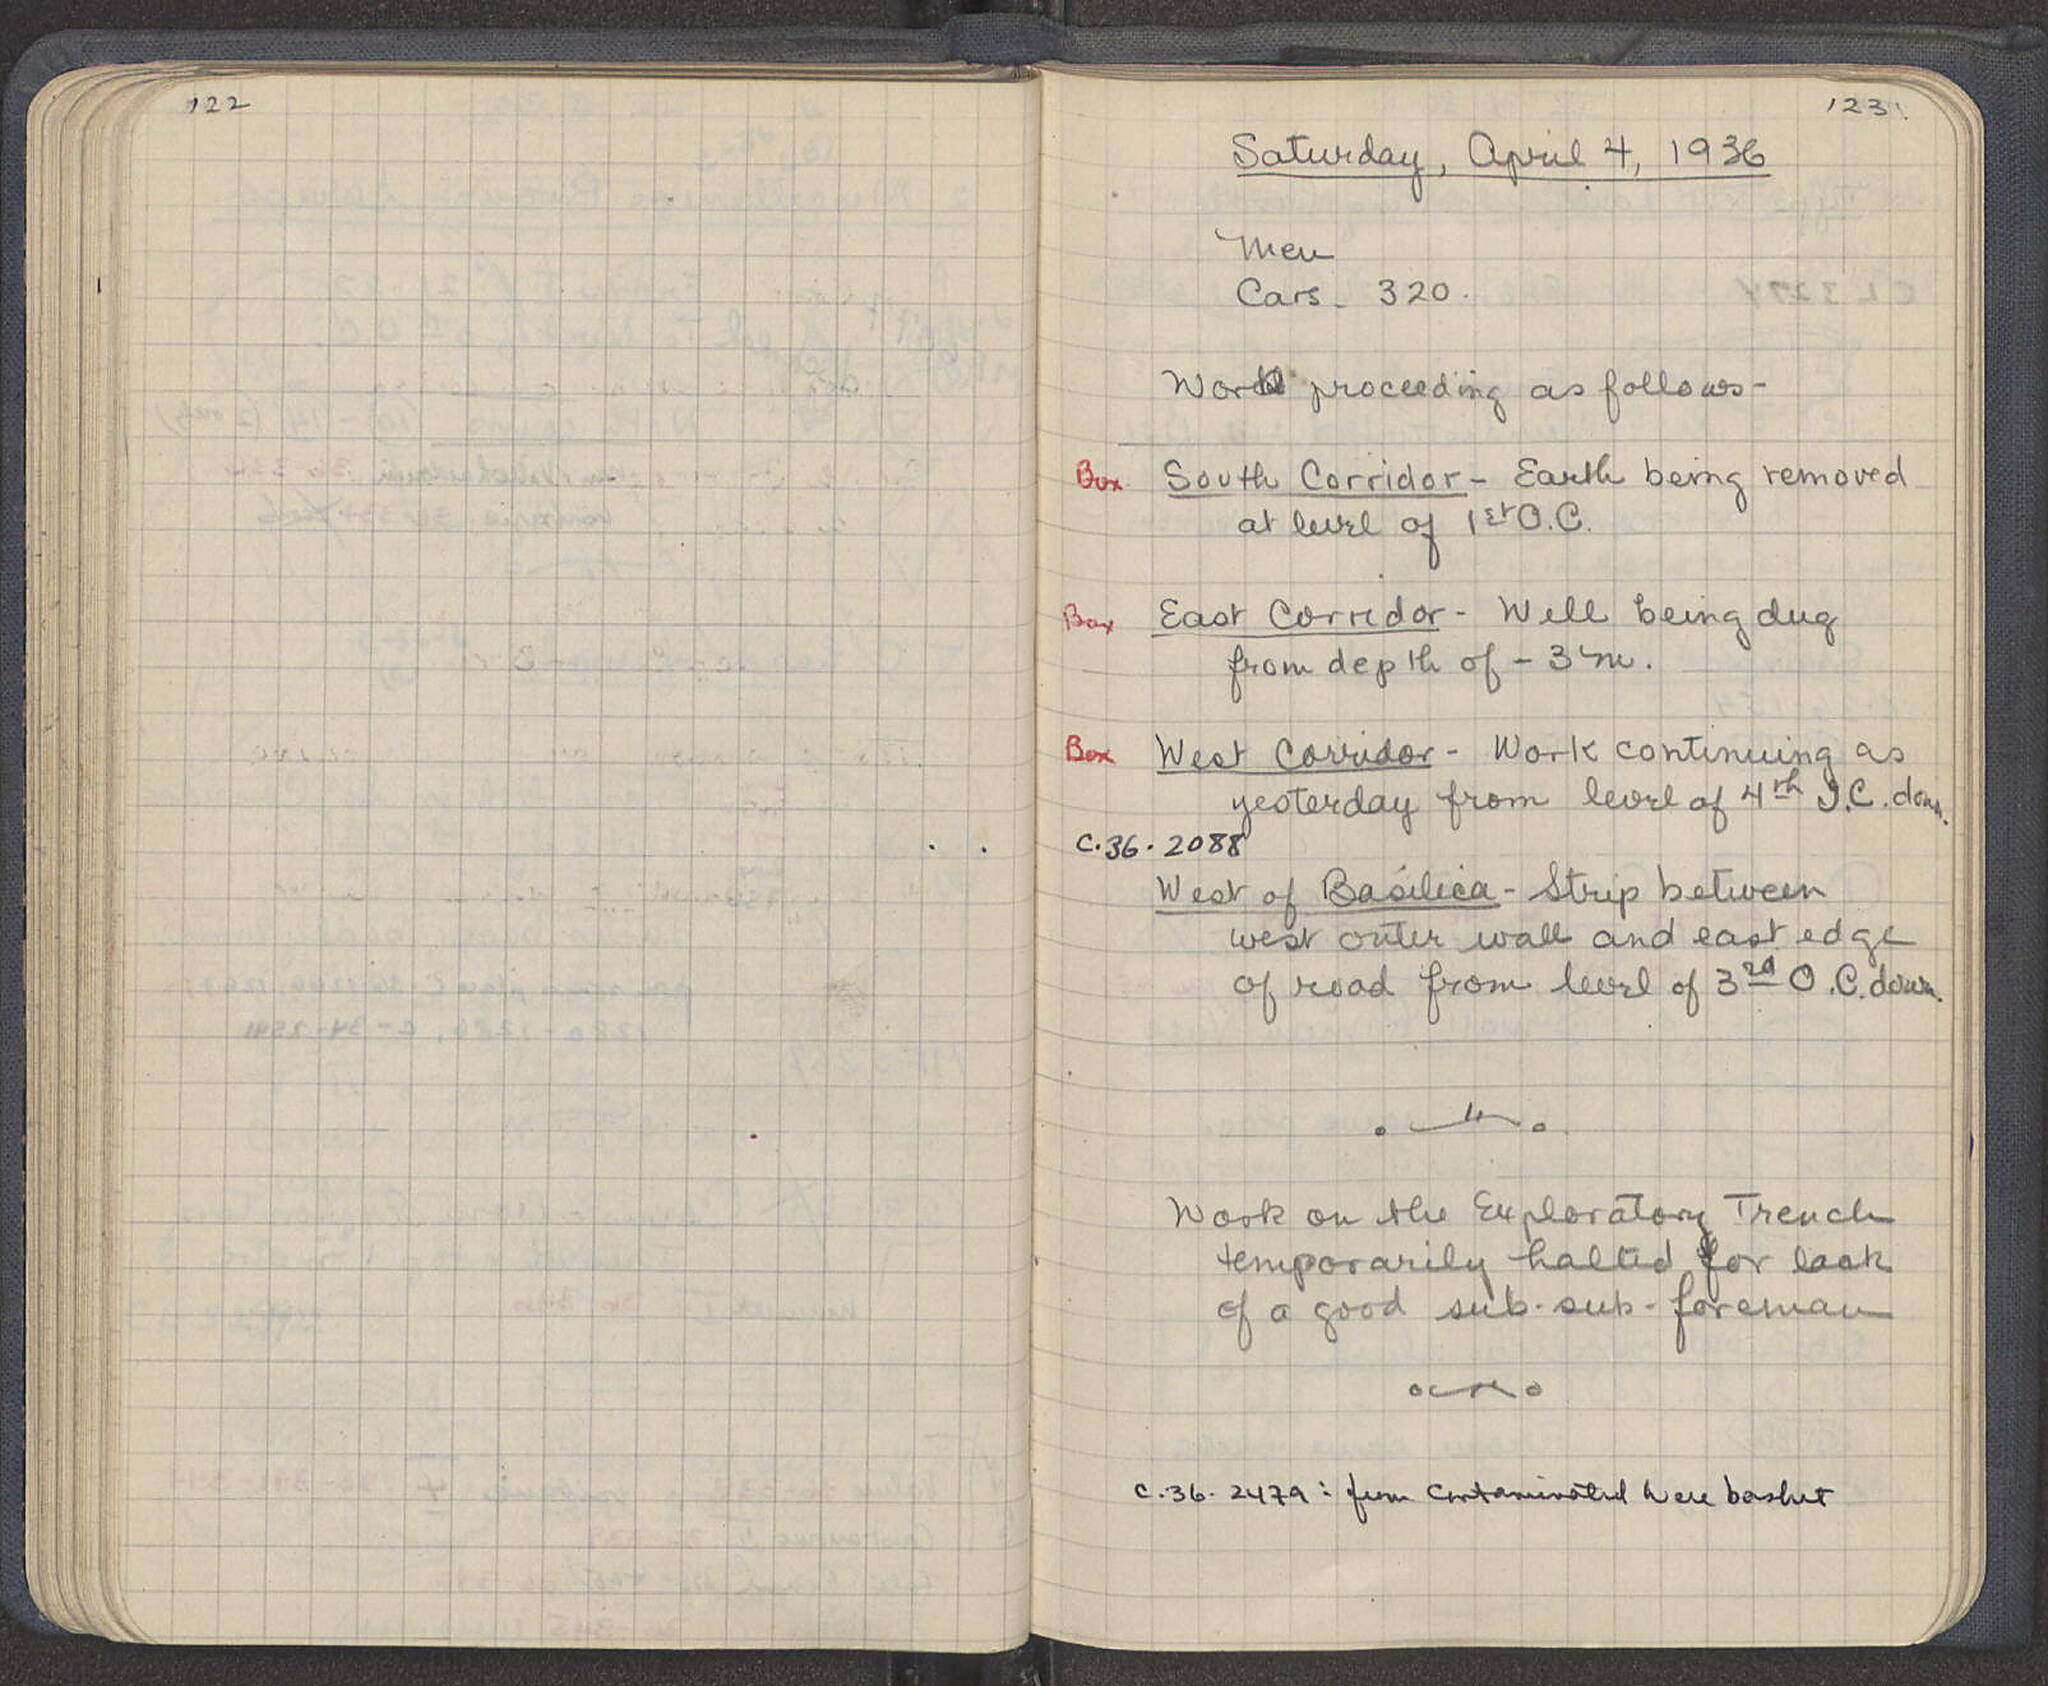 122
123
Saturday, April 4, 1936
Men
Cars - 320.
Work proceeding as follows -
Box South Corridor - Earth being removed
at level of 1st O.C.
Box East Corridor - Well being dug
from depth of - 3 m.
Box West Corridor - Work continuing as
yesterday from level of 4th I.C. down.
C.36.2088
West of Basilica - Strip between
west outer wall and east edge
of road from level of 3rd O.C. down.
Work on the Exploratory Trench
temporarily halted for lack
of a good sub-sub-foreman
C.36.2479 : from contaminated were basket